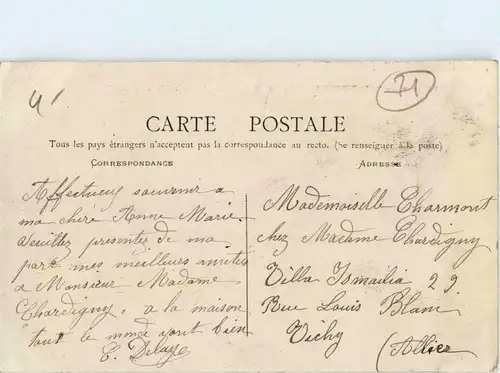 4/
71
CARTE POSTALE
Tous les pays étrangers n'acceptent pas la correspondance au recto. (Se renseigner à la poste)
CORRESPONDANCE
ADRESSE
Affectueux souvenir a
ma chère Anne Marie.
Veuillez presenter de ma
part mes meilleurs amitiés
a Monsieur Madame
Chardigny, a la maison
tout le monde vont bien
E. Delaye
Mademoiselle Charmont
chez Madame Chardigny
Villa Ismaïlia 29.
Rue Louis Blanc
Vichy
(Allier